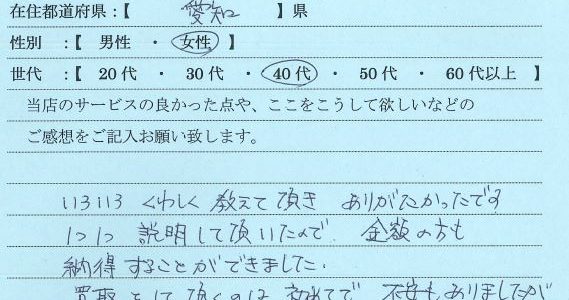 在住都道府県:【 愛知 】県
性別 :【 男性 ・ 女性 】
世代 :【 20代 ・ 30代 ・ 40代 ・ 50代 ・ 60代以上 】
当店のサービスの良かった点や、ここをこうして欲しいなどの
ご感想をご記入お願い致します。
いろいろ くわしく 教えて頂き ありがたかったです
1つ1つ 説明して頂いたので 金額の方も
納得することができました.
買取して頂くのは 初めてで 不安もありましたが